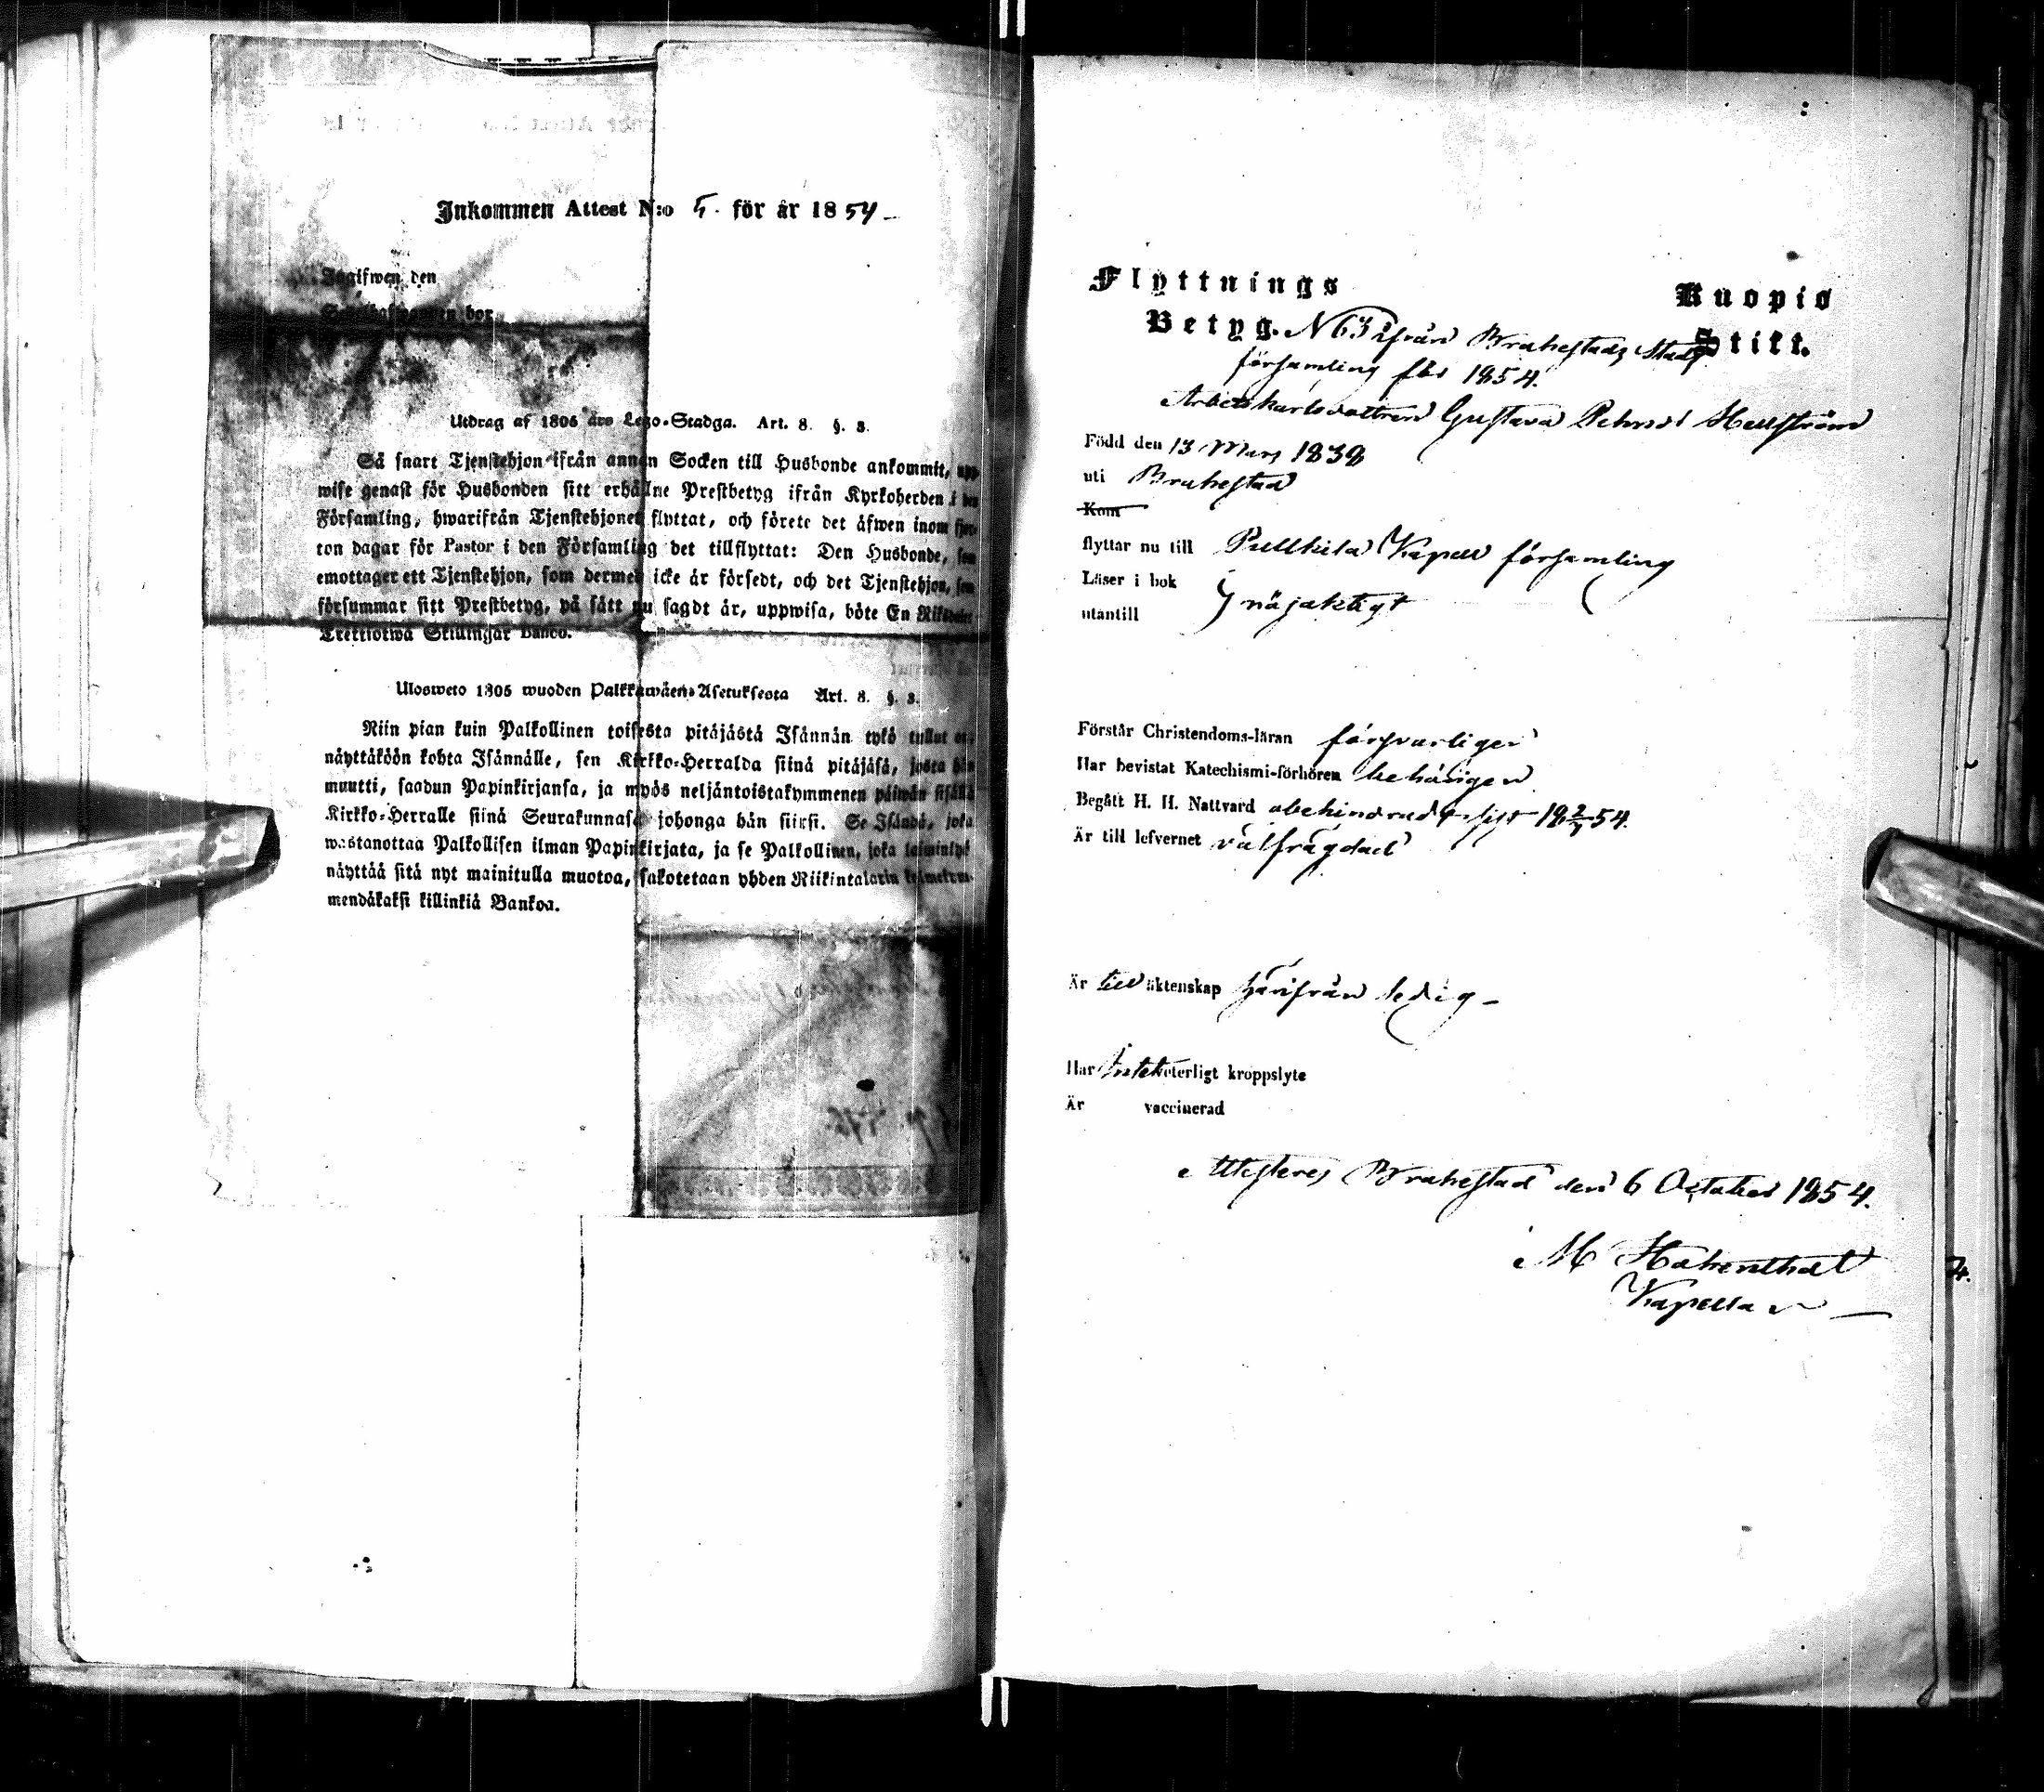 Inkommen Attest N:o 5. för år 1854
Ingifwen den
bor
Utdrag af 1805 års Lego-Stadga. Art. 8. §. 3.
Så snart Tjenstehjon ifrån annan Socken till Husbonde ankommit, upp
wise genast för Husbonden sitt erhållne Prestbetyg ifrån Kyrkoherden i den
Församling, hwarifrån Tjenstehjonet flyttat, och förete det äfwen inom fjor-
ton dagar för Pastor i den Församling det tillflyttat: Den Husbonde, som
emottager ett Tjenstehjon, som dermed icke är försedt, och det Tjenstehjon, som
försummar sitt Prestbetyg, på sätt nu sagdt är, uppwisa, böte En Riksdaler
Trettiotwå Skillingar Banco.
Ulosweto 1805 wuoden Palkkawäen-Asetuksesta Art. 8. §. 3.
Niin pian kuin Palkollinen toisesta pitäjästä Isännän tykö tullut on,
näyttäköön kohta Isännälle, sen Kirkko-Herralda siinä pitäjäsä, josta hän
muutti, saadun Papinkirjansa, ja myös neljäntoistakymmenen päiwän sisällä
Kirkko-Herralle siinä Seurakunnasa johonga hän siirsi. Se Isändä, joka
wastanottaa Palkollisen ilman Papinkirjata, ja se Palkollinen, joka laiminlyö
näyttää sitä nyt mainitulla muotoa, sakotetaan yhden Riikintalarin kolmekym-
mendäkaksi killinkiä Bankoa.
Flyttnings Kuopio
Betyg. N 63 ifrån Brahestads Stads Stift.
församling för 1854.
Arbetskarlsdottren Gustava Hellström
Född den 13 Mars 1838
uti Brahestad
Kom
flyttar nu till Pulkila Kapell församling
Läser i bok
utantill nöjaktigt
Förstår Christendoms-läran försvarligen
Har bevistat Katechismi-förhören behörigen
Begått H. H. Nattvard obehindrad sist 18 2/7 54.
Är till lefvernet välfrägdad
Är till äktenskap härifrån ledig
Har intet veterligt kroppslyte
Är vaccinerad
Attesteres Brahestad den 6 October 1854.
M Hohenthal
Kapellan
4.